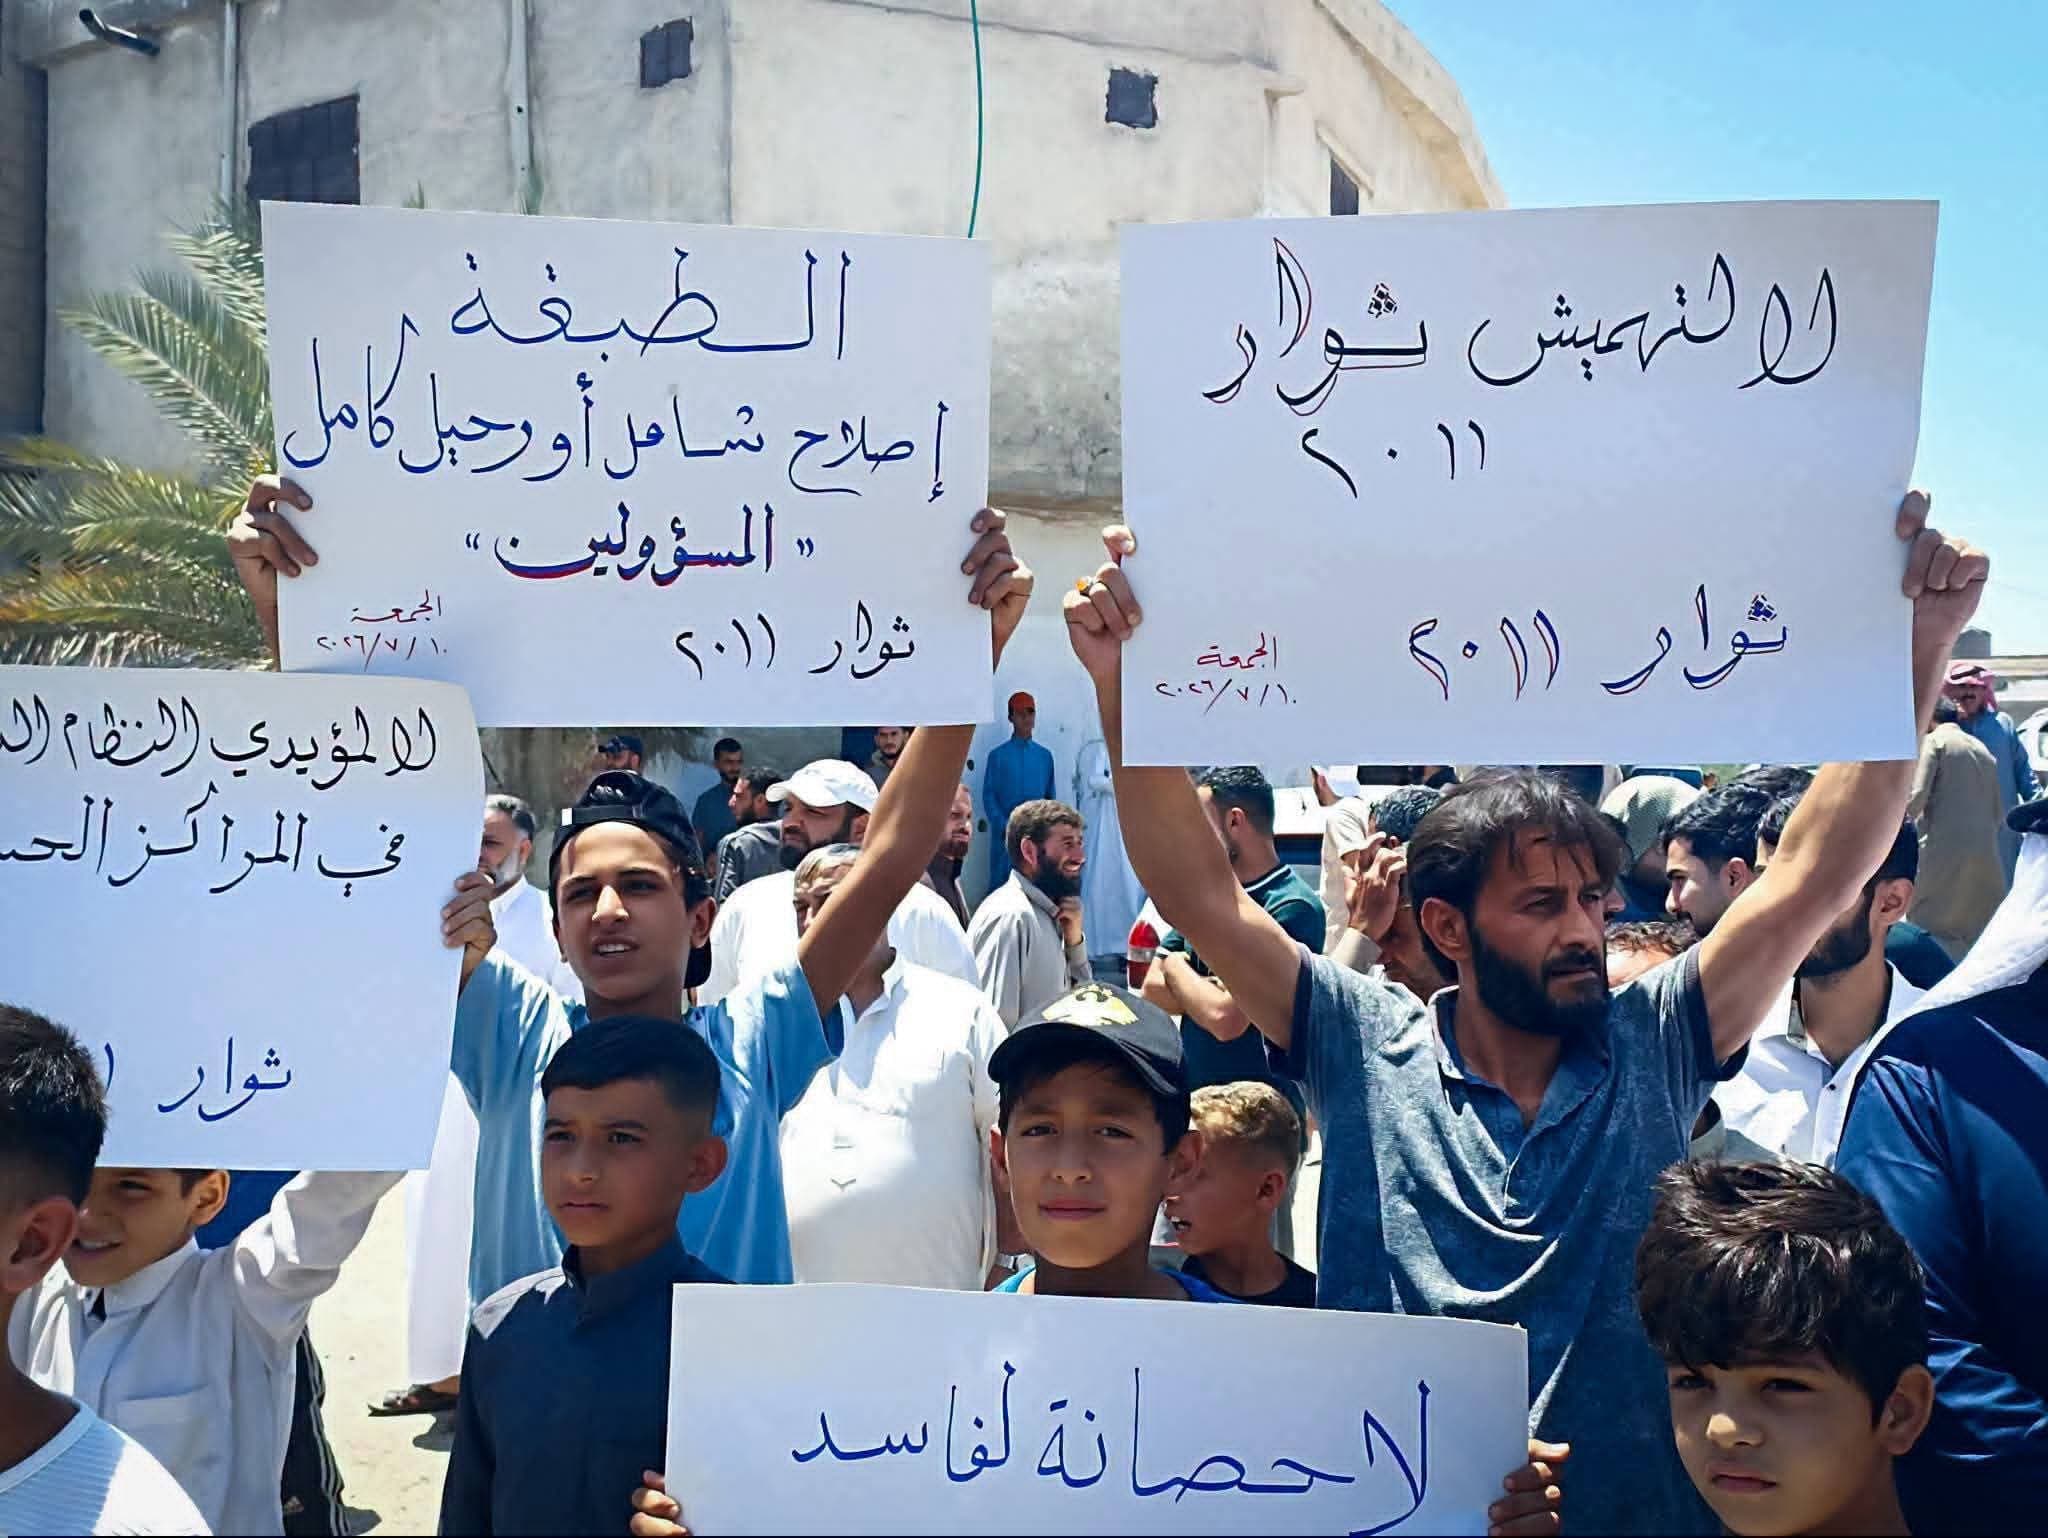 الطبقة
إصلاح شامل أو رحيل كامل
"المسؤولين"
ثوار ٢٠١١
الجمعة
٢٠٢٦/٧/١٠
لا لتهميش ثوار
٢٠١١
ثوار ٢٠١١
الجمعة
٢٠٢٦/٧/١٠
لا لمؤيدي النظام
في المراكز
ثوار
لا حصانة لفاسد